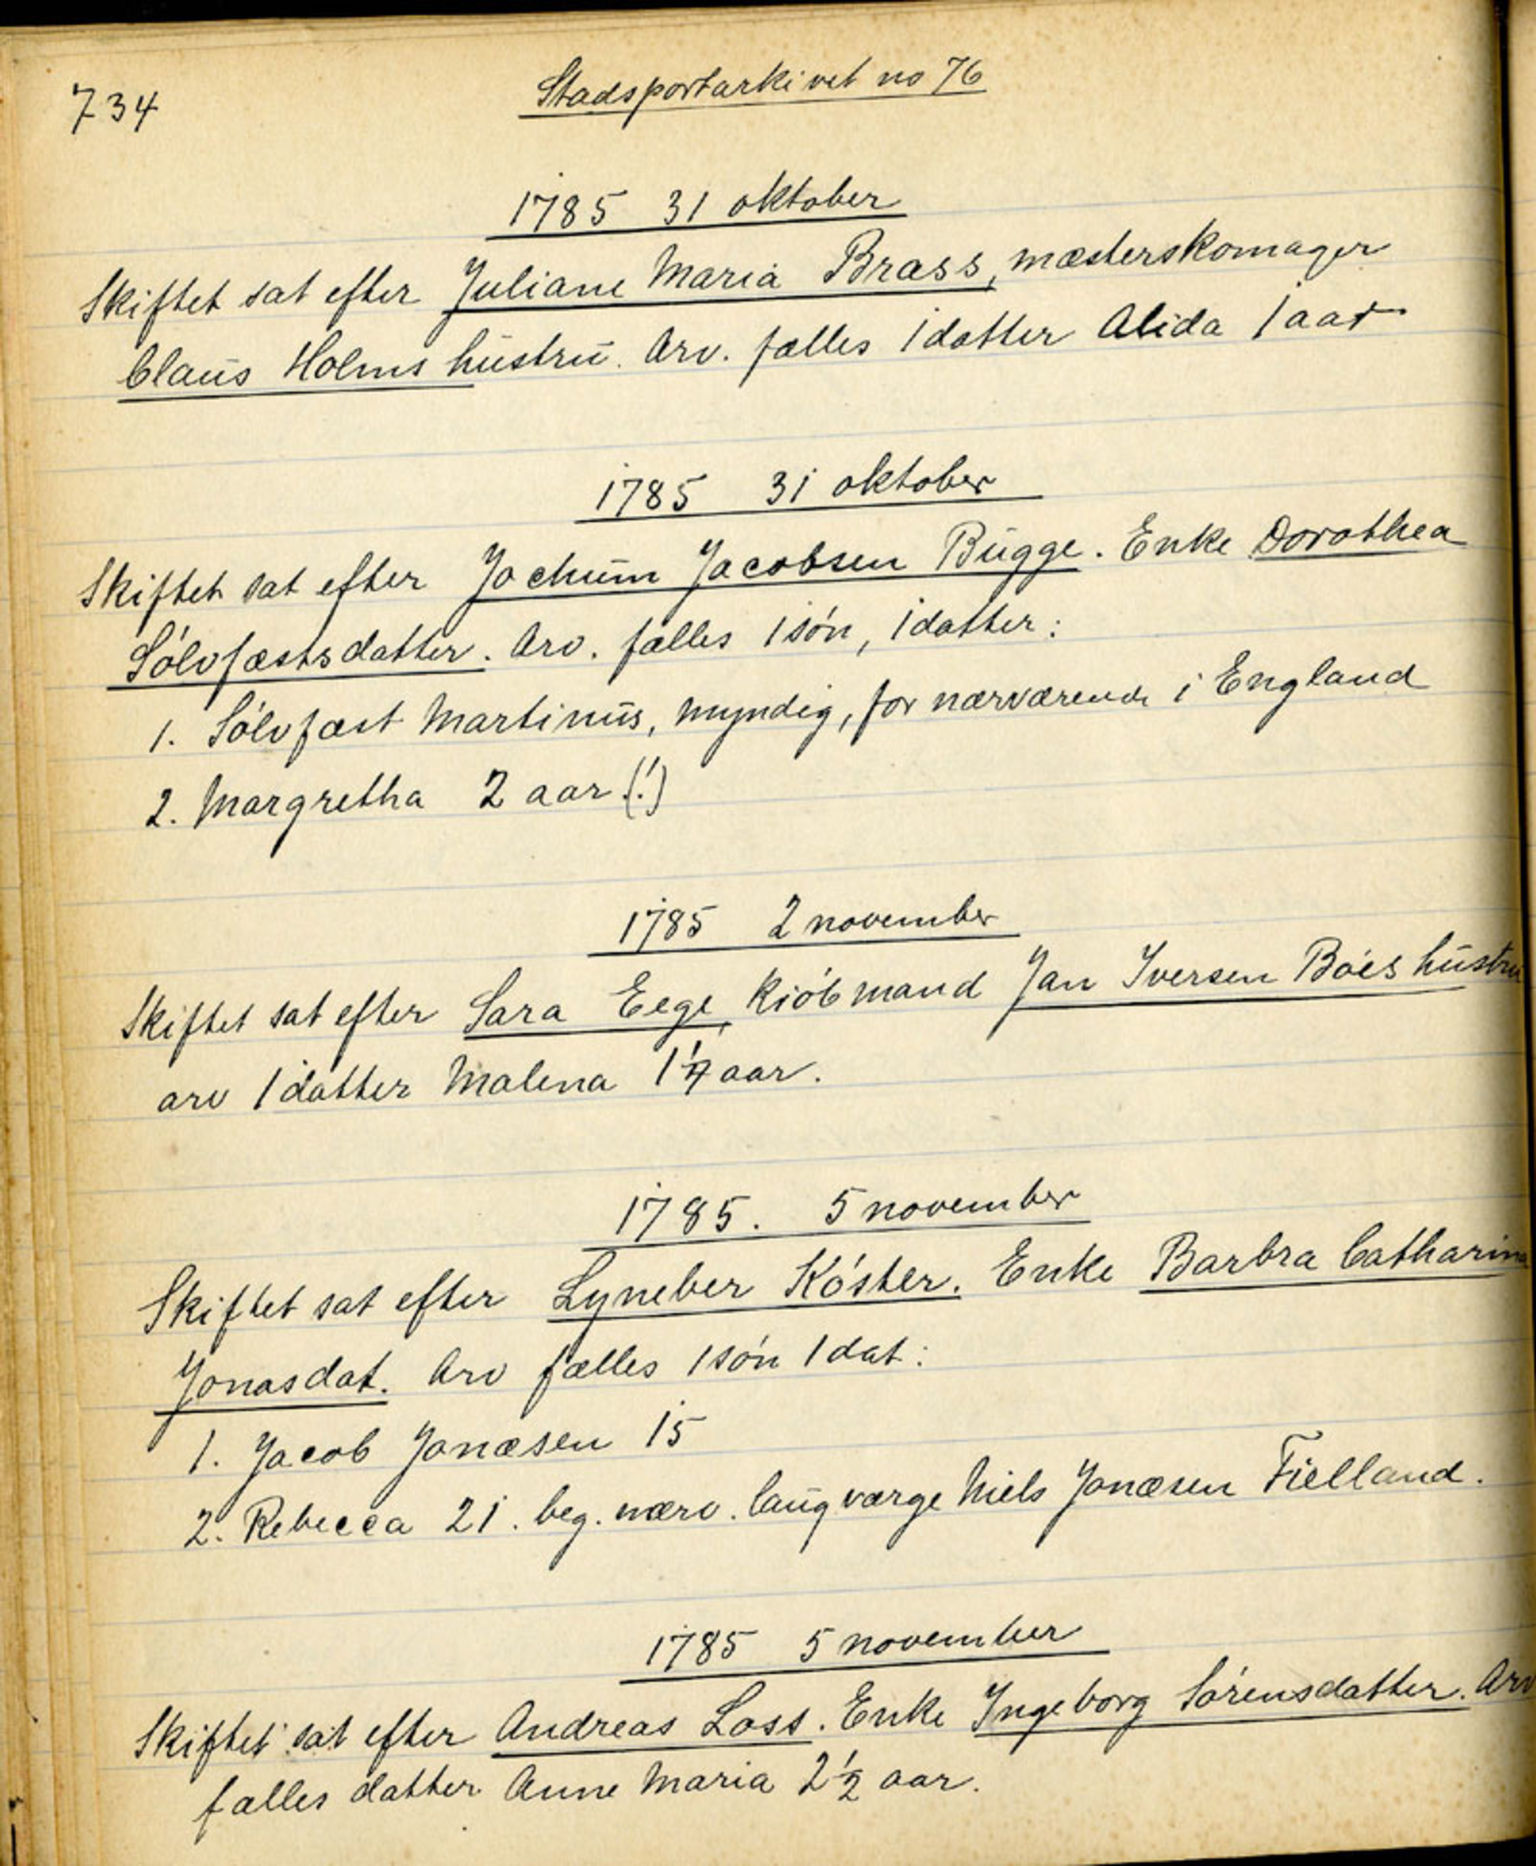 734
Stadsportarkivet no 76
1785 31 oktober
Skiftet sat efter Juliane Maria Brass, mæsterskomager
Claus Holms hustru. Arv. fælles 1 datter Alida 1 aar
1785 31 oktober
Skiftet sat efter Jochum Jacobsen Bugge. Enke Dorothea
Sólvfæstsdatter. Arv. fælles 1 són, 1 datter:
1. Sólvfæst Martinus, myndig, for nærværende i England
2. Margretha 2 aar (!)
1785 2 november
Skiftet sat efter Sara Eege, kióbmand Jan Iversen Bóes hustru
arv 1 datter Malena 1 1/4 aar.
1785. 5 november
Skiftet sat efter Lyneber Kóster. Enke Barbra Catharina
Jonasdat. Arv fælles 1 són 1 dat:
1. Jacob Jonæsen 15
2. Rebecca 21. beg. nærv. laugværge Niels Jonæsen Fielland.
1785 5 november
Skiftet sat efter Andreas Loss. Enke Ingeborg Sórensdatter. Arv
fælles datter Anne Maria 2 1/2 aar.